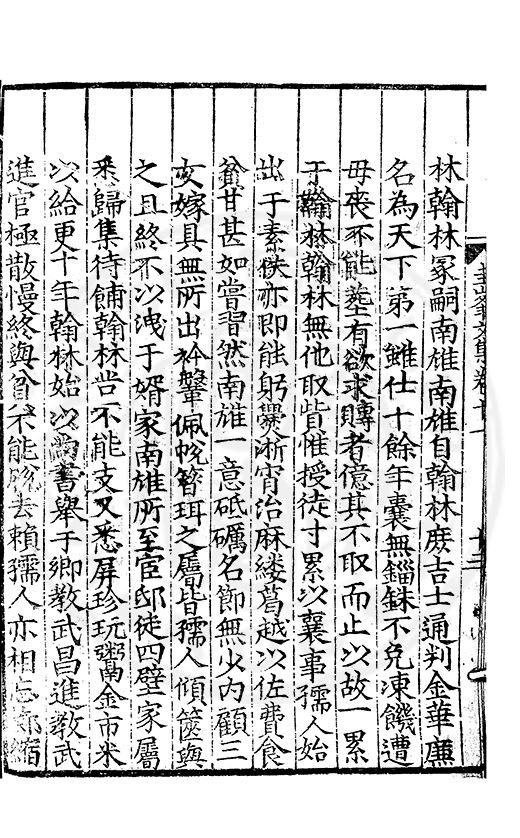 林翰林冢嗣南雄南雄自翰林庶吉士通判金華廉
名為天下第一雖仕十餘年囊無錙銖不免凍饑遭
母喪不能塟有欲求賻者億其不取而止以故一累
于翰林翰林無他取貲惟授徒寸累以襄事孺人始
出于素侠亦即能躬爨淅宵治麻縷葛越以佐費食
貧甘甚如嘗習然南雄一意砥礪名節無少内顧三
女嫁具無所出衿鞶佩帨簪珥之屬皆孺人傾篋與
之且終不以洩于婿家南雄所至宦邸徒四壁家屬
悉歸集待餔翰林甞不能支又悉屏珍玩鬻金市米
以給更十年翰林始以尚書舉于鄉教武昌進教武
進官極散慢終與貧不能脫去賴孺人亦相忘
卷十一
十二